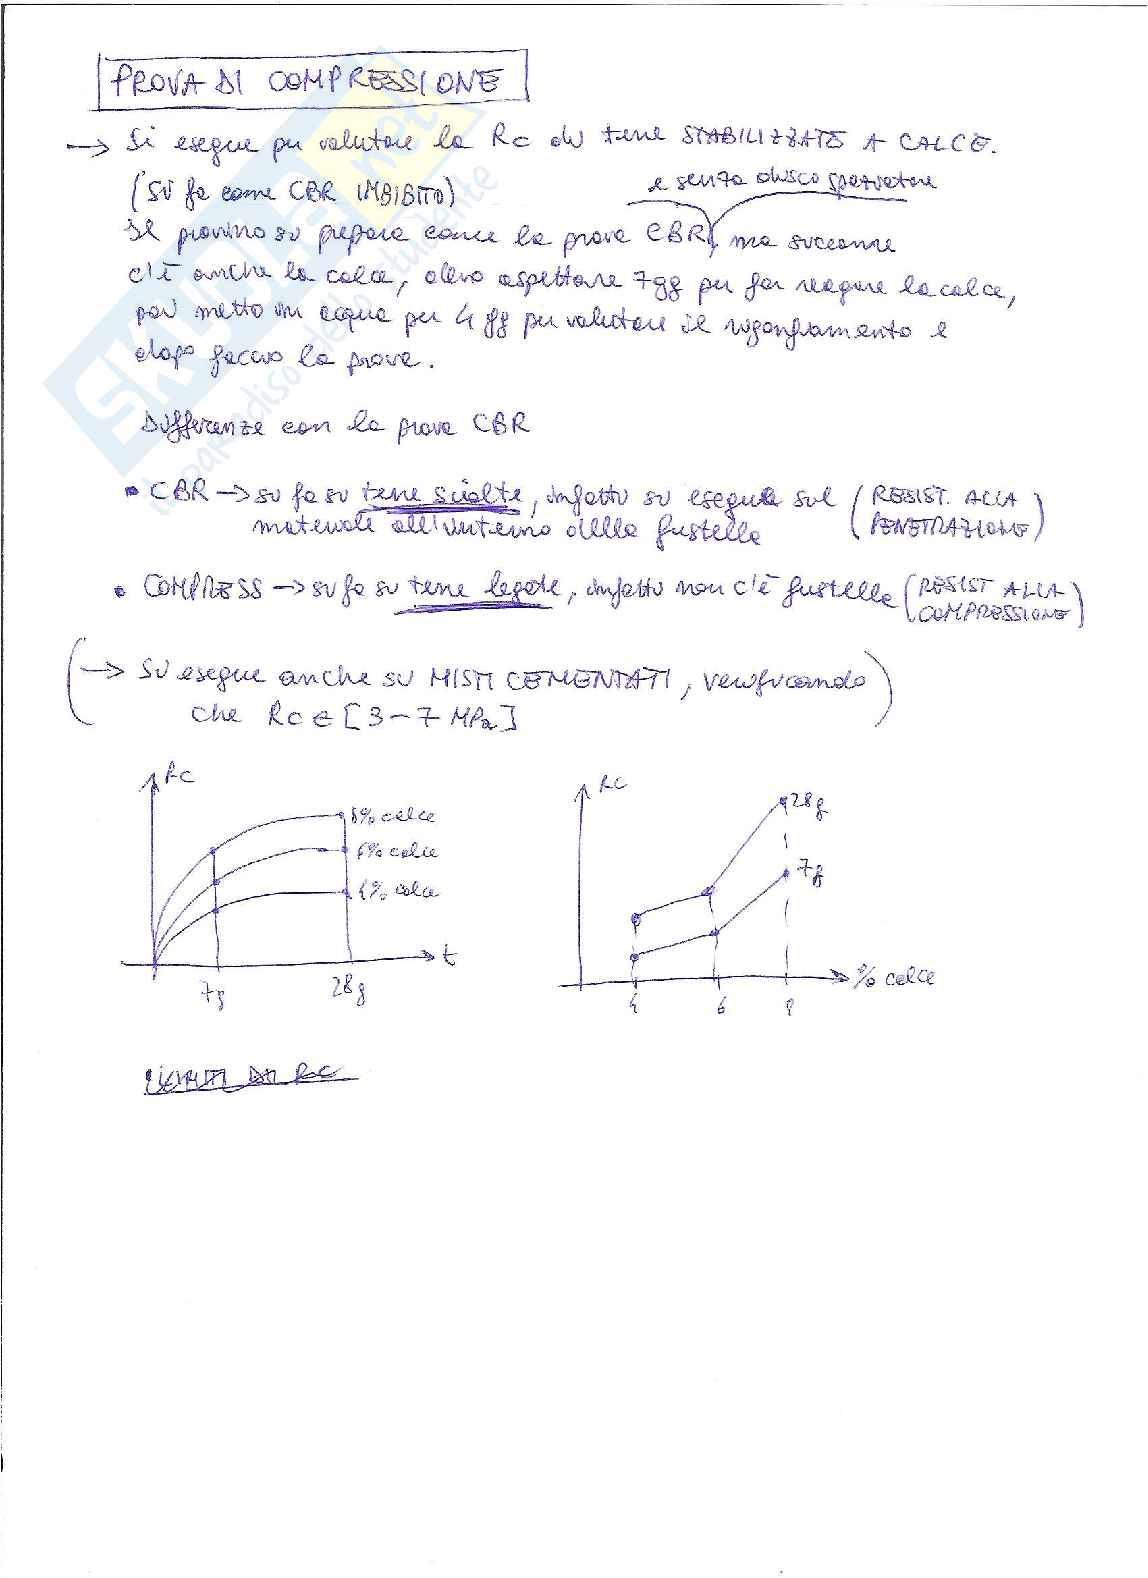 PROVA DI COMPRESSIONE
→ Si esegue per valutare la Rc di terre STABILIZZATE A CALCE.
(si fa come CBR IMBIBITO)
e senza disco spaziatore
Il provino si prepara come la prova CBR, ma siccome
c'è anche la calce, devo aspettare 7gg per far reagire la calce,
poi metto in acqua per 4 gg per valutare il rigonfiamento e
dopo faccio la prova.
Differenze con la prova CBR
• CBR → si fa su terre sciolte, infatti si esegue sul (RESIST. ALLA
materiale all'interno della fustella PENETRAZIONE)
• COMPRESS → si fa su terre legate, infatti non c'è fustella (RESIST ALLA
COMPRESSIONE)
(→ Si esegue anche su MISTI CEMENTATI, verificando
che Rc ∈ [3-7 MPa])
Rc
8% calce
6% calce
4% calce
t
7g
28g
Rc
28g
7g
% calce
4
6
8
SKUOLA.net
il paradiso dello studente